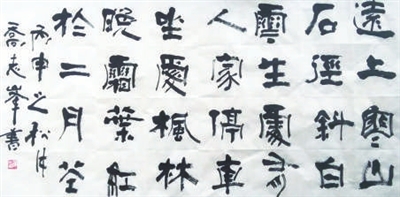 遠上寒山
石徑斜白
雲生處有
人家停車
坐愛楓林
晚霜葉紅
於二月花
丙申之秋
喬志峯書